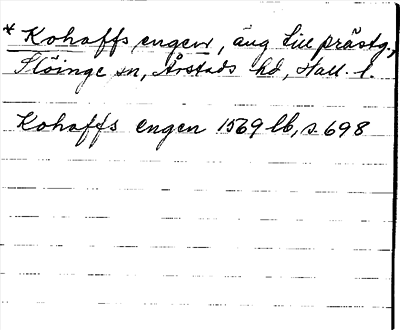 * Kohoffs engen, äng till prästg.,
Slöinge sn, Årstads hd, Hall. l.
Kohoffs engen 1569 lb, s. 698